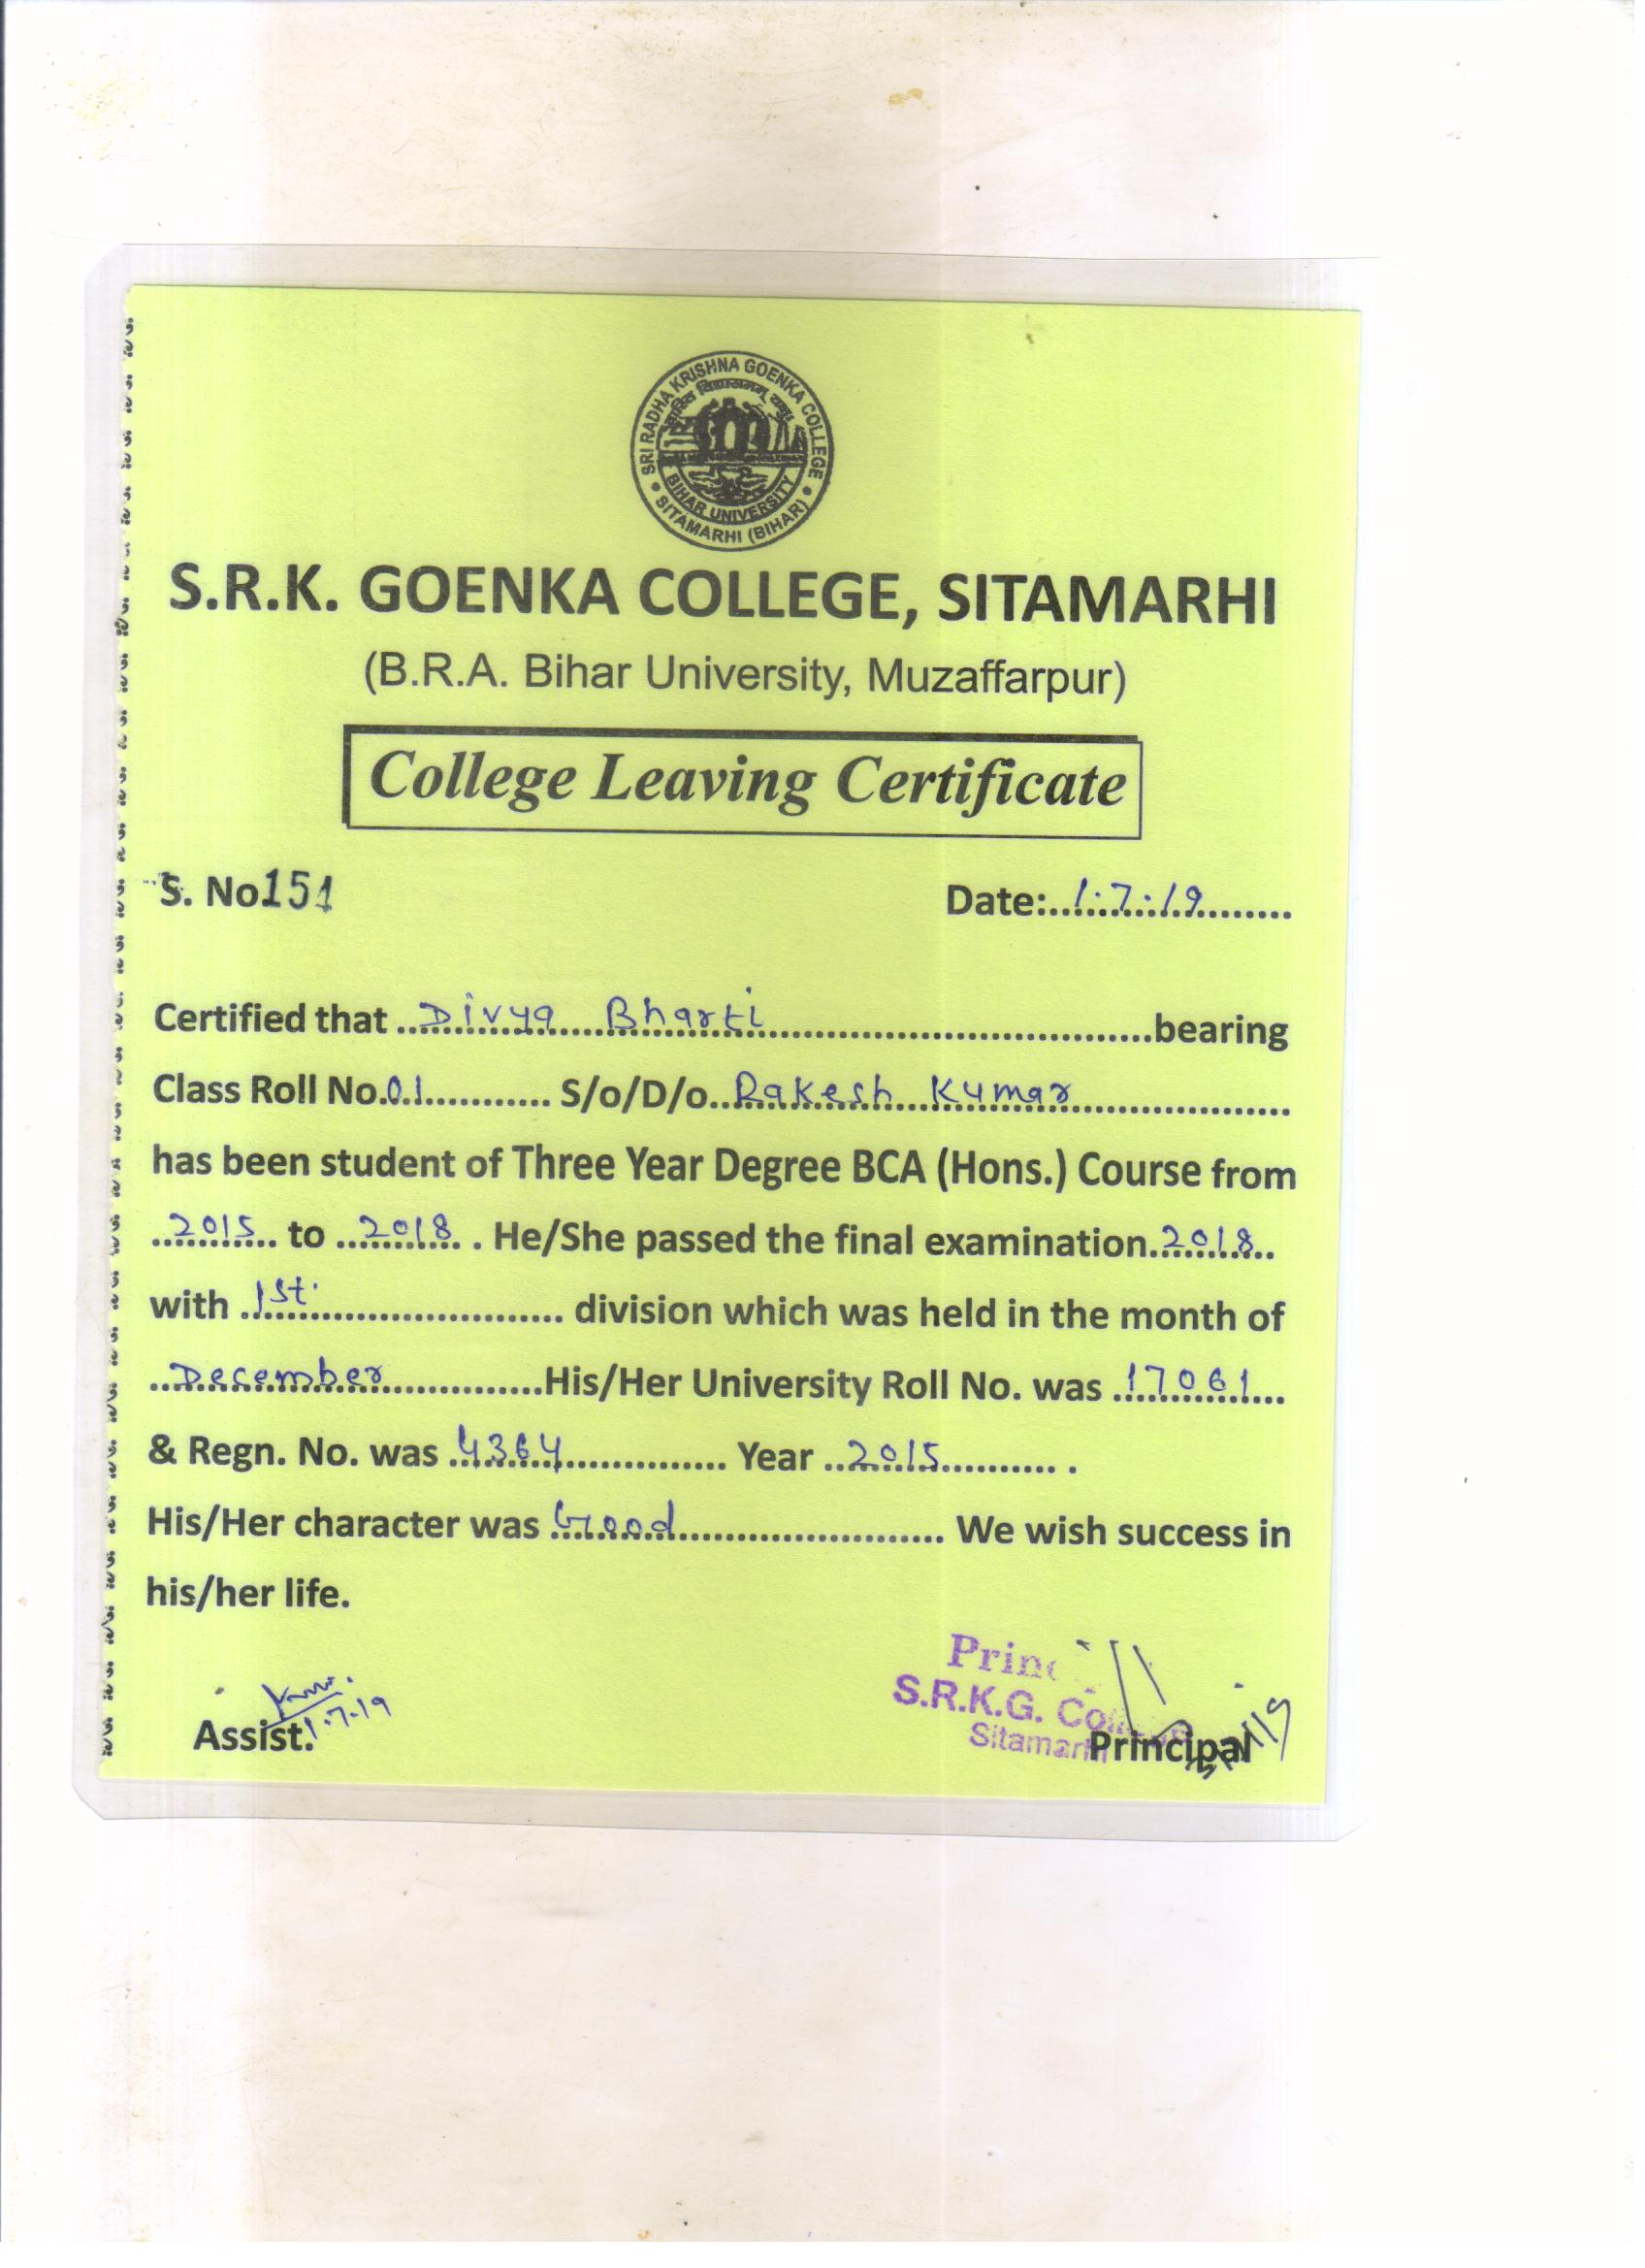 SRI RADHA KRISHNA GOENKA COLLEGE
BIHAR UNIVERSITY
SITAMARHI (BIHAR)
S.R.K. GOENKA COLLEGE, SITAMARHI
(B.R.A. Bihar University, Muzaffarpur)
College Leaving Certificate
S. No 151 Date:..1.7.19........
Certified that ..Divya Bharti..........bearing
Class Roll No.01........... S/o/D/o..Rakesh Kumar..........
has been student of Three Year Degree BCA (Hons.) Course from
..2015.. to ..2018.. . He/She passed the final examination..2018..
with .1st............ division which was held in the month of
..December............His/Her University Roll No. was .17061...
& Regn. No. was ..4364............ Year ..2015.......... .
His/Her character was ..Good............ We wish success in
his/her life.
1.7.19
Assist.
S.R.K.G.
Sitamarhi
Principal